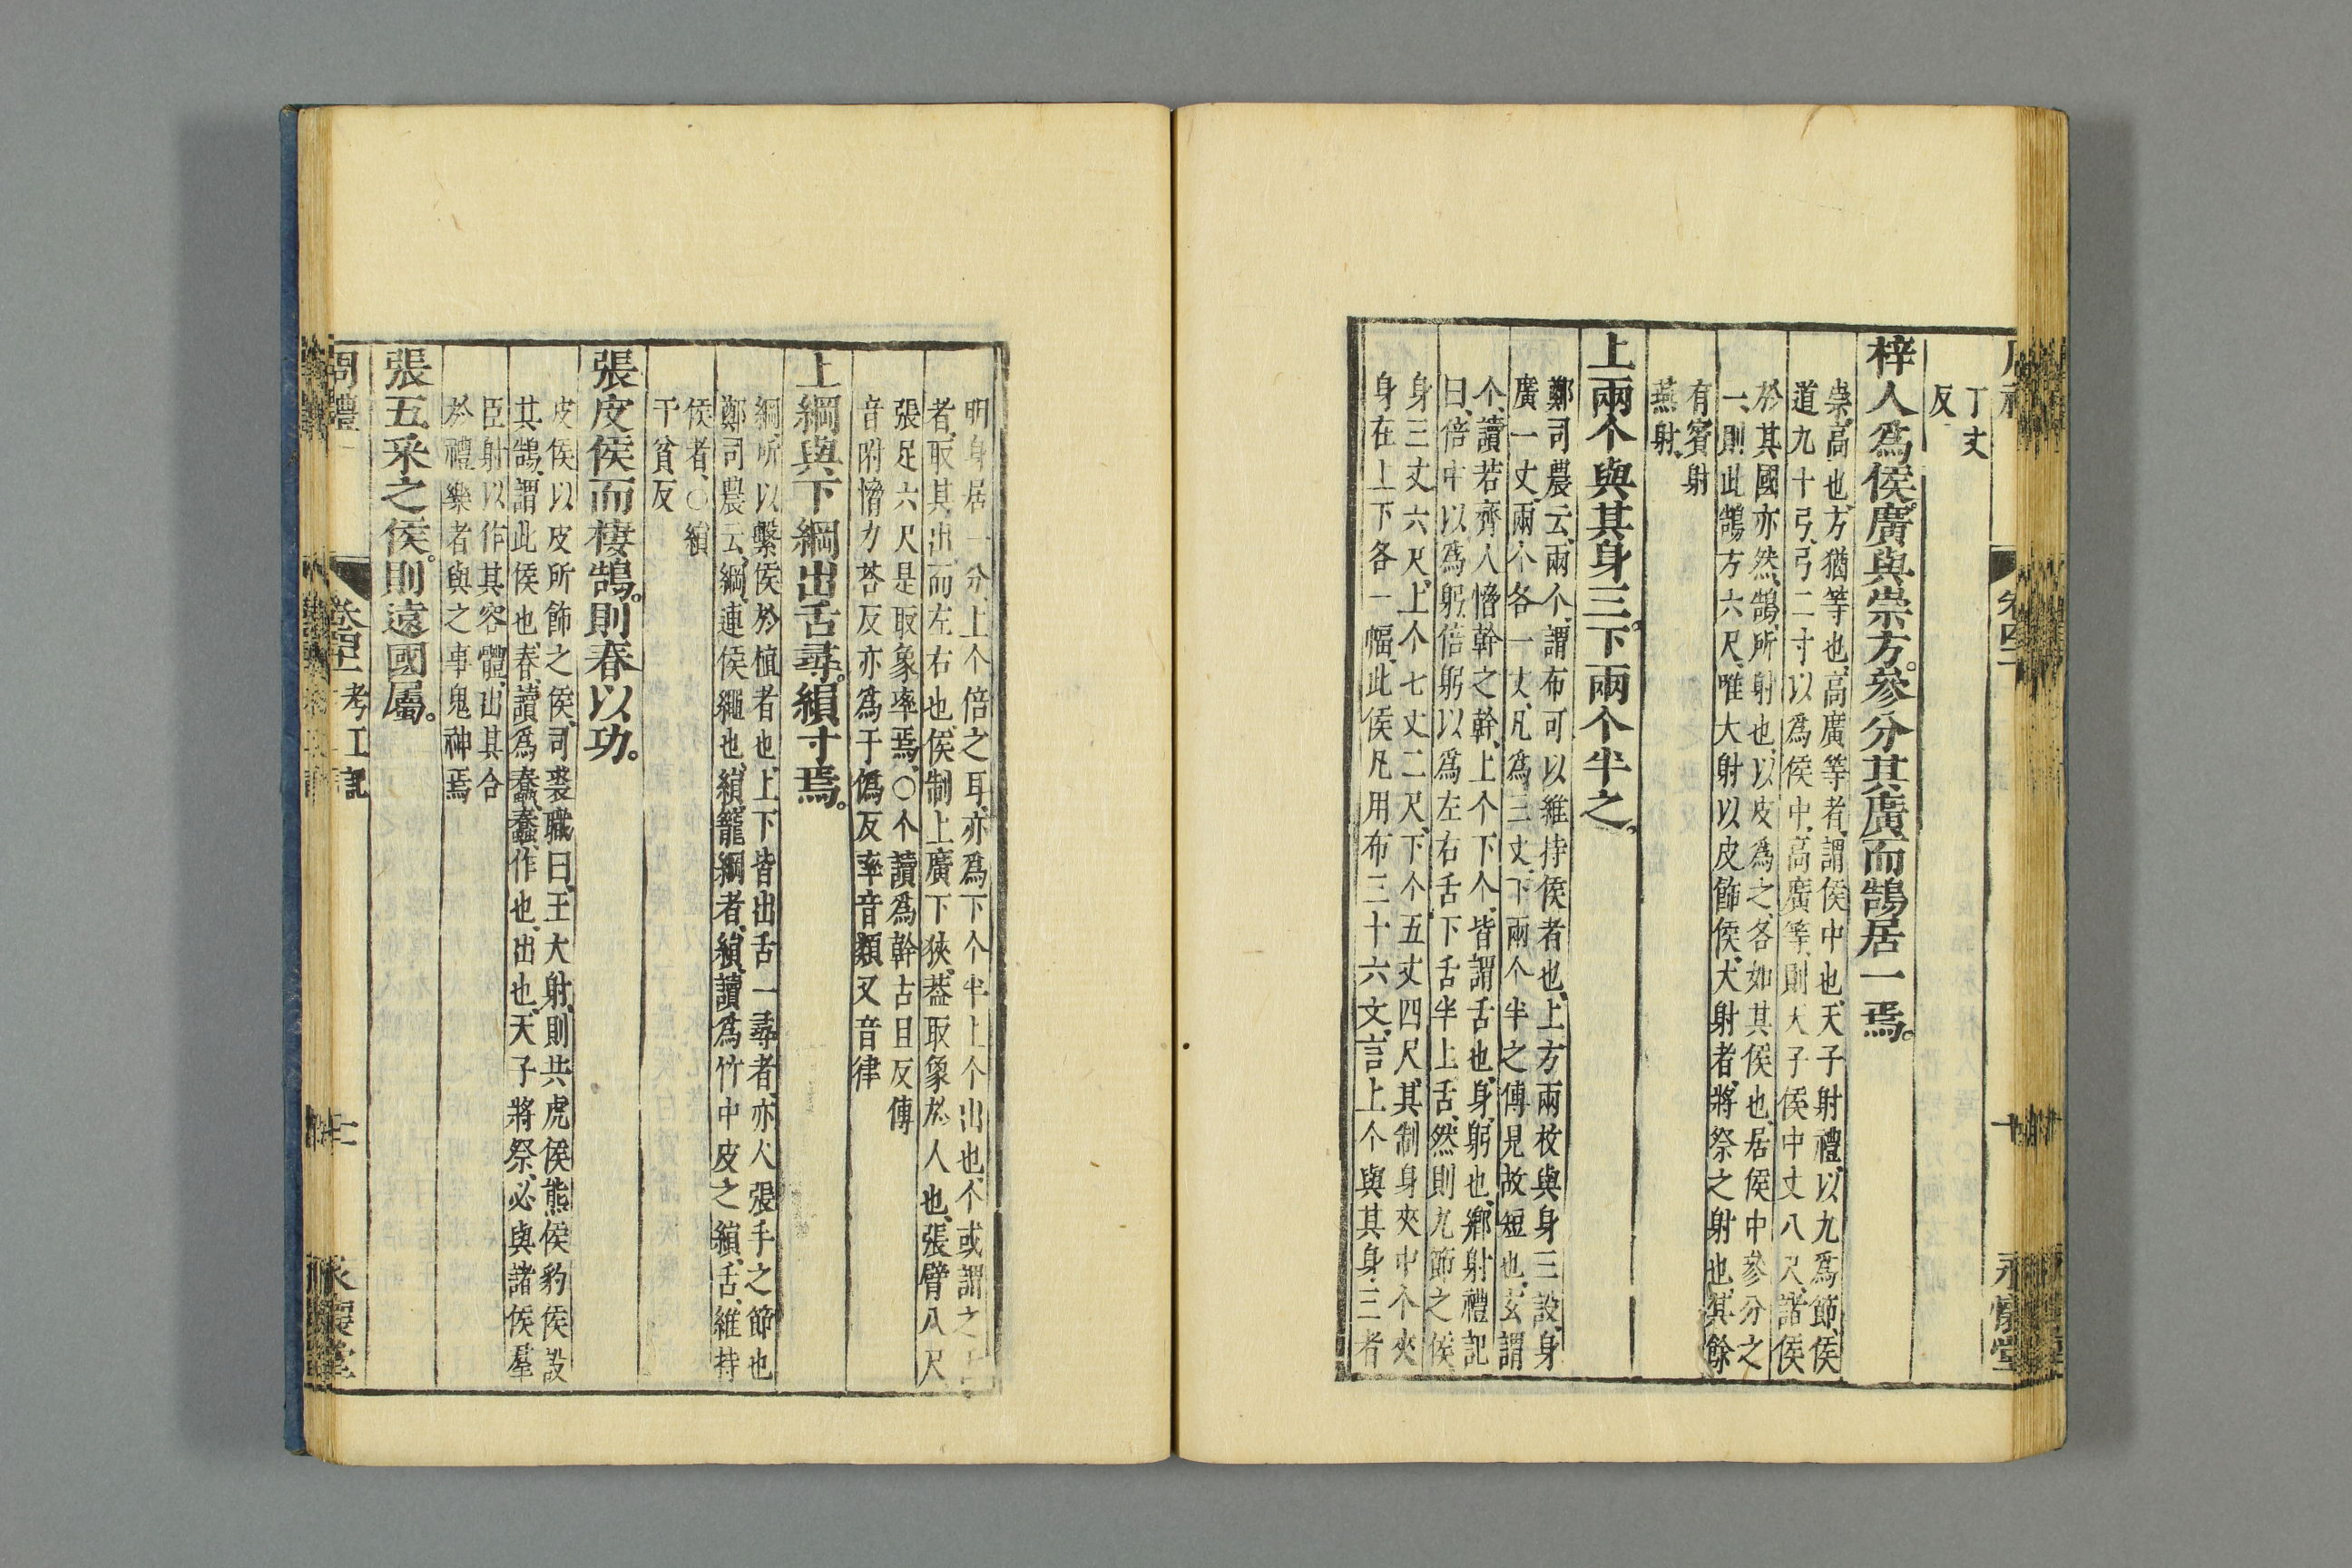 丁丈
反
梓人爲侯。廣與崇方。參分其廣而鵠居一焉。
崇、高也、方猶等也、高廣等者、謂侯中也、天子射禮、以九爲節、侯
道九十弓、弓二寸以爲侯中、高廣等、則天子侯中丈八尺、諸侯
於其國亦然、鵠、所射也、以皮爲之、各如其侯也、居侯中參分之
一、則此鵠方六尺、唯大射以皮飾侯、大射者、將祭之射也、其餘
有賓射
燕射、
上兩个與其身三。下兩个半之。
鄭司農云、兩个、謂布可以維持侯者也、上方兩枚與身三設、身
廣一丈、兩个各一丈、凡爲三丈、下兩个半之傅見故短也、玄謂
个、讀若齊人㩉幹之幹、上个下个、皆謂舌也、身、躬也、鄉射禮記
曰、倍中以爲躬、倍躬以爲左右舌、下舌半上舌、然則九節之侯、
身三丈六尺、上个七丈二尺、下个五丈四尺、其制身夾中个夾
身在上下各一幅、此侯凡用布三十六丈、言上个與其身三者
明身居一分、上个倍之耳、亦爲下个半上个出也、个或謂之
者、取其出而左右也、侯制上廣下狹、葢取象於人也、張臂八尺
張足六尺是取象率焉、○个讀爲幹古旦反傅
音附㩉力荅反亦爲于僞反率音類又音律
上綱與下綱出舌尋。縜寸焉。
綱、所以繫侯於植者也、上下皆出舌一尋者、亦人張手之節也
鄭司農云、綱、連侯繩也、縜、籠綱者、縜、讀爲竹中皮之縜、舌、維持
侯者、○縜
于貧反
張皮侯而棲鵠。則春以功。
皮侯以皮所飾之侯、司裘職曰、王大射、則共虎侯熊侯豹侯設
其鵠、謂此侯也、春、讀爲蠢、蠢、作也、出也、天子將祭、必與諸侯羣
臣射以作其容體、出其合
於禮樂者與之事鬼神焉
張五采之侯。則遠國屬。
周禮
卷四十一
考工記
十一
永懷堂